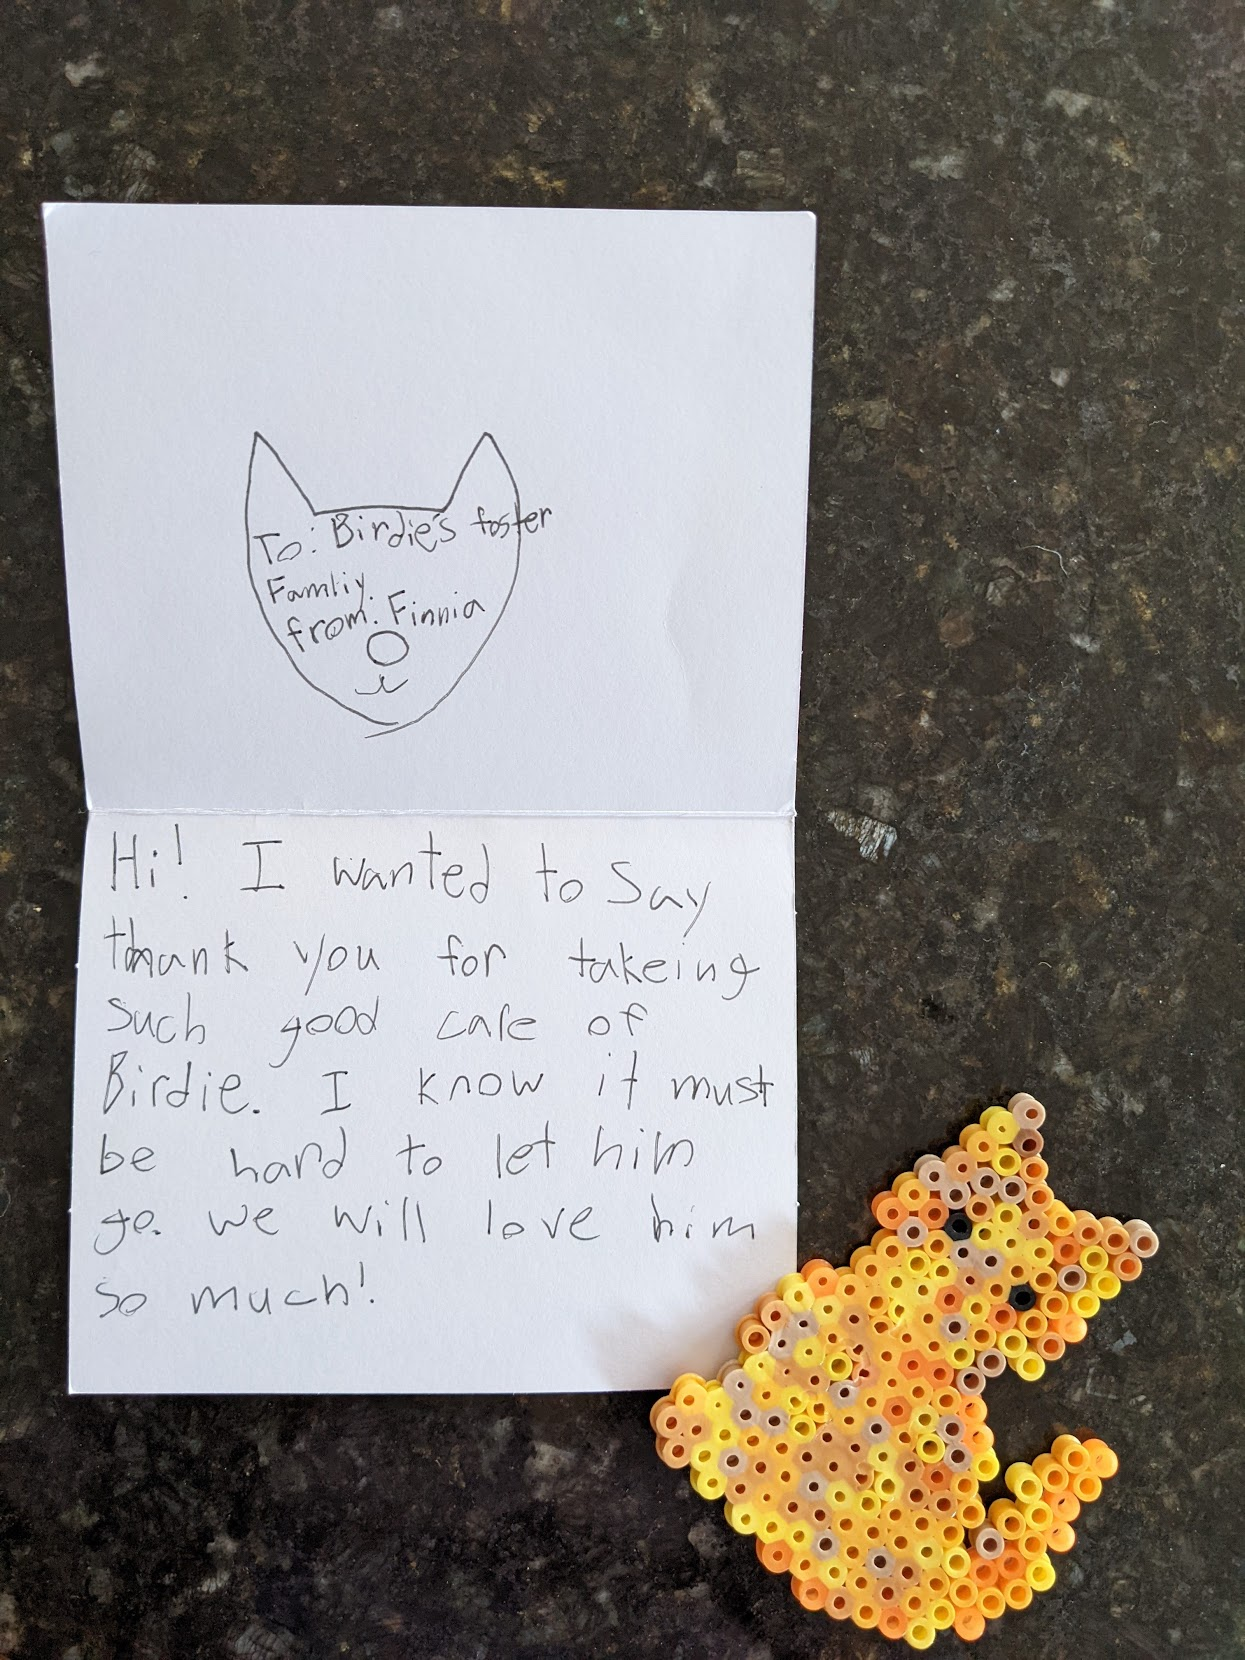 To: Birdie's foster
Famliy.
from. Finnia
Hi! I wanted to say
thank you for takeing
such good care of
Birdie. I know it must
be hard to let him
go. we will love him
so much!